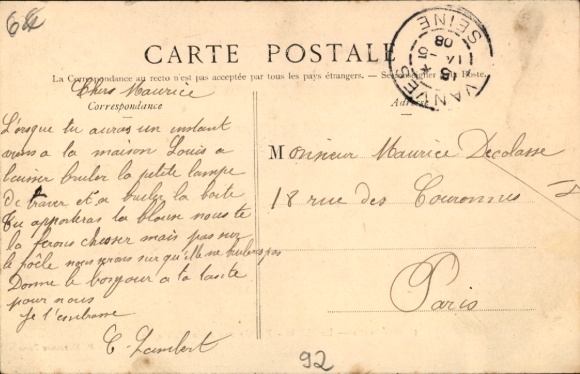 64
CARTE POSTALE
La Correspondance au recto n'est pas acceptée par tous les pays étrangers. — Se renseigner à la Poste.
VANVES
SEINE
15
08
Correspondance
Adresse
Chers Maurice
Lorsque tu auras un instant
viens a la maison Louis a
laisser bruler la petite lampe
de traver et a bruler la boite
tu apporteras la blouse nous te
la ferons chosser mais pas sur
le poêle nous serons sur qu'elle ne brulera pas
Donne le bonjour a ta tante
pour nous
Je t'embrasse
C. Lambert
Monsieur Maurice Decolasse
18 rue des Couronnes
Paris
92